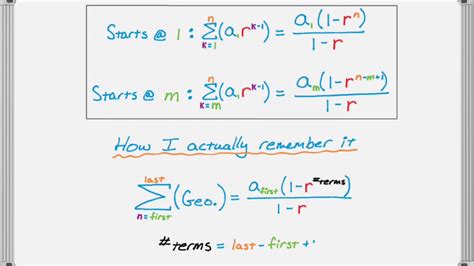 Starts @ 1 : ∑ₖ₌₁ⁿ(a₁rᵏ⁻¹) = a₁(1-rⁿ) / 1-r
Starts @ m : ∑ₖ₌ₘⁿ(a₁rᵏ⁻¹) = aₘ(1-rⁿ⁻ᵐ⁺¹) / 1-r
How I actually remember it
last
∑(Geo.) = a_first(1-r^#terms) / 1-r
n=first
#terms = last-first+